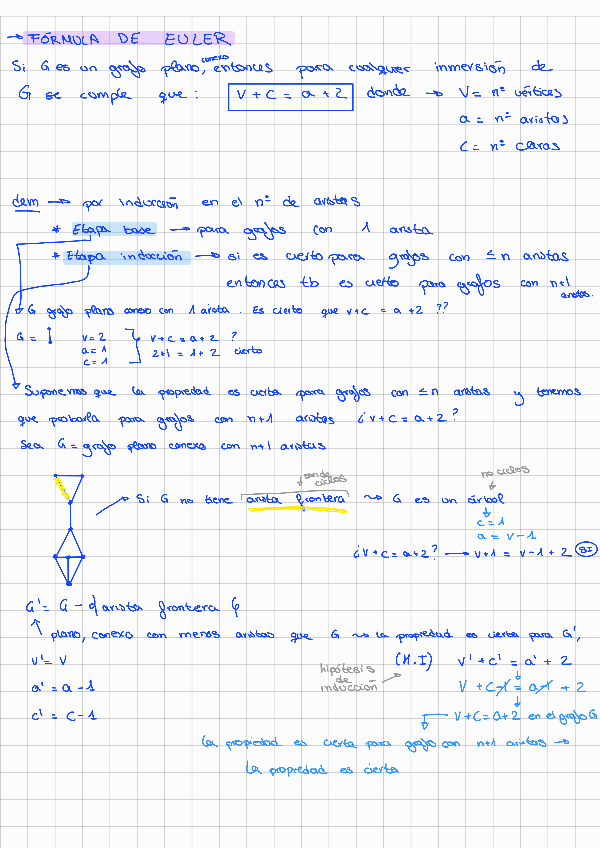 → FÓRMULA DE EULER
Si G es un grafo plano, conexo entonces para cualquier inmersión de
G se cumple que: V + C = a + 2 donde → V = nº vértices
a = nº aristas
C = nº caras
dem → por inducción en el nº de aristas
* Etapa base → para grafos con 1 arista
* Etapa inducción → si es cierto para grafos con ≤ n aristas
entonces tb es cierto para grafos con n+1 aristas.
G grafo plano conexo con 1 arista. Es cierto que v+c = a+2 ??
G = v = 2
a = 1
c = 1
v+c = a+2 ?
2+1 = 1+2 cierto
Suponemos que la propiedad es cierta para grafos con ≤ n aristas y tenemos
que probarla para grafos con n+1 aristas ¿v+c = a+2?
Sea G = grafo plano conexo con n+1 aristas
donde ciclos
no ciclos
Si G no tiene arista frontera → G es un árbol
c = 1
a = v - 1
¿v+c = a+2? → v+1 = v-1+2 BI
G' = G - { arista frontera }
plano, conexo con menos aristas que G → la propiedad es cierta para G',
v' = v
a' = a - 1
c' = c - 1
hipótesis de inducción
(H.I) v' + c' = a' + 2
v + c - 1 = a - 1 + 2
v + c = a + 2 en el grafo G
la propiedad es cierta para grafo con n+1 aristas →
la propiedad es cierta